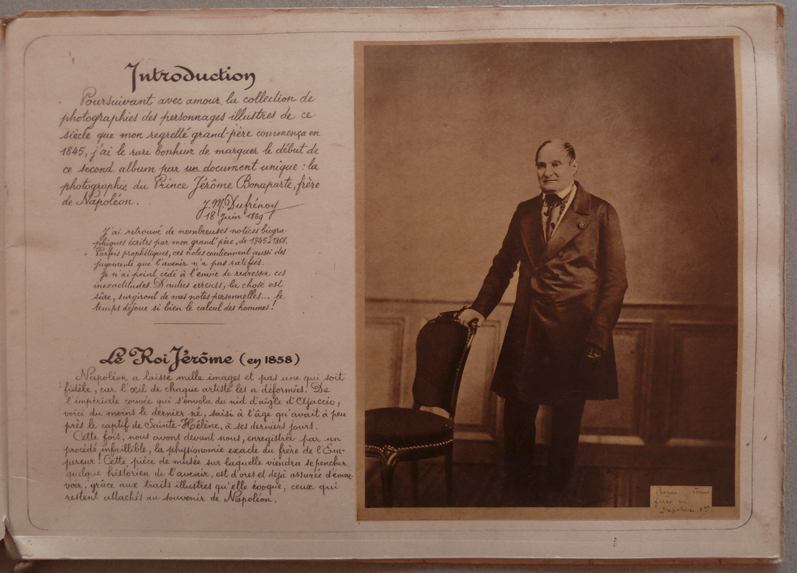 Introduction
Poursuivant avec amour la collection de
photographies des personnages illustres de ce
siècle que mon regretté grand-père commença en
1845, j'ai le rare bonheur de marquer le début de
ce second album par un document unique : la
photographie du Prince Jérôme Bonaparte, frère
de Napoléon.
J. M. Dufrénoy
18 Juin 1869
J'ai retrouvé de nombreuses notices biogra-
phiques écrites par mon grand'père, de 1845 à
Parfois prophétiques, ces notes contiennent aussi des
jugements que l'avenir n'a pas ratifiés.
Je n'ai point cédé à l'envie de redresser ces
inexactitudes. D'autres erreurs, la chose est
sûre, surgiront de mes notes personnelles... le
temps déjoue si bien le calcul des hommes !
Le Roi Jérôme (en 1858)
Napoléon a laissé mille images et pas une qui soit
fidèle, car l'œil de chaque artiste les a déformées. De
l'impériale couvée qui s'envola du nid d'aigle d'Ajaccio,
voici du moins le dernier né, saisi à l'âge qu'avait à peu
près le captif de Sainte-Hélène, à ses derniers jours.
Cette fois, nous avons devant nous, enregistrée par un
procédé infaillible, la physionomie exacte du frère de l'Em-
pereur ! Cette pièce de musée sur laquelle viendra se pencher
quelque historien de l'avenir, est d'ores et déjà assurée d'émou-
voir, grâce aux traits illustres qu'elle évoque, ceux qui
restent attachés au souvenir de Napoléon.
frère de
Napoléon 1er